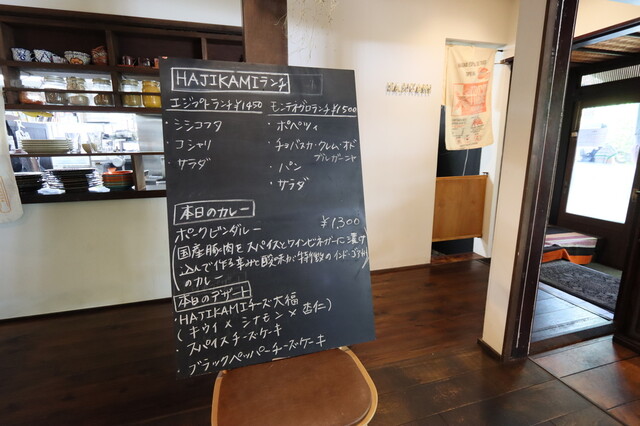 HAJIKAMIランチ
エジプトランチ¥1450
・シシコフタ
・コシャリ
・サラダ
モンテネグロランチ¥1500
・ポペツィ
・チョバスカ・クレム・オド
ブルガーニャ
・パン
・サラダ
本日のカレー
ポークビンダルー ¥1300
国産豚肉をスパイスとワインビネガーに漬け
込んで作る辛みと酸味が特徴のインド・ゴア州
のカレー
本日のデザート
・HAJIKAMIチーズ大福
(キウイ×シナモン×杏仁)
・スパイスチーズケーキ
・ブラックペッパーチーズケーキ